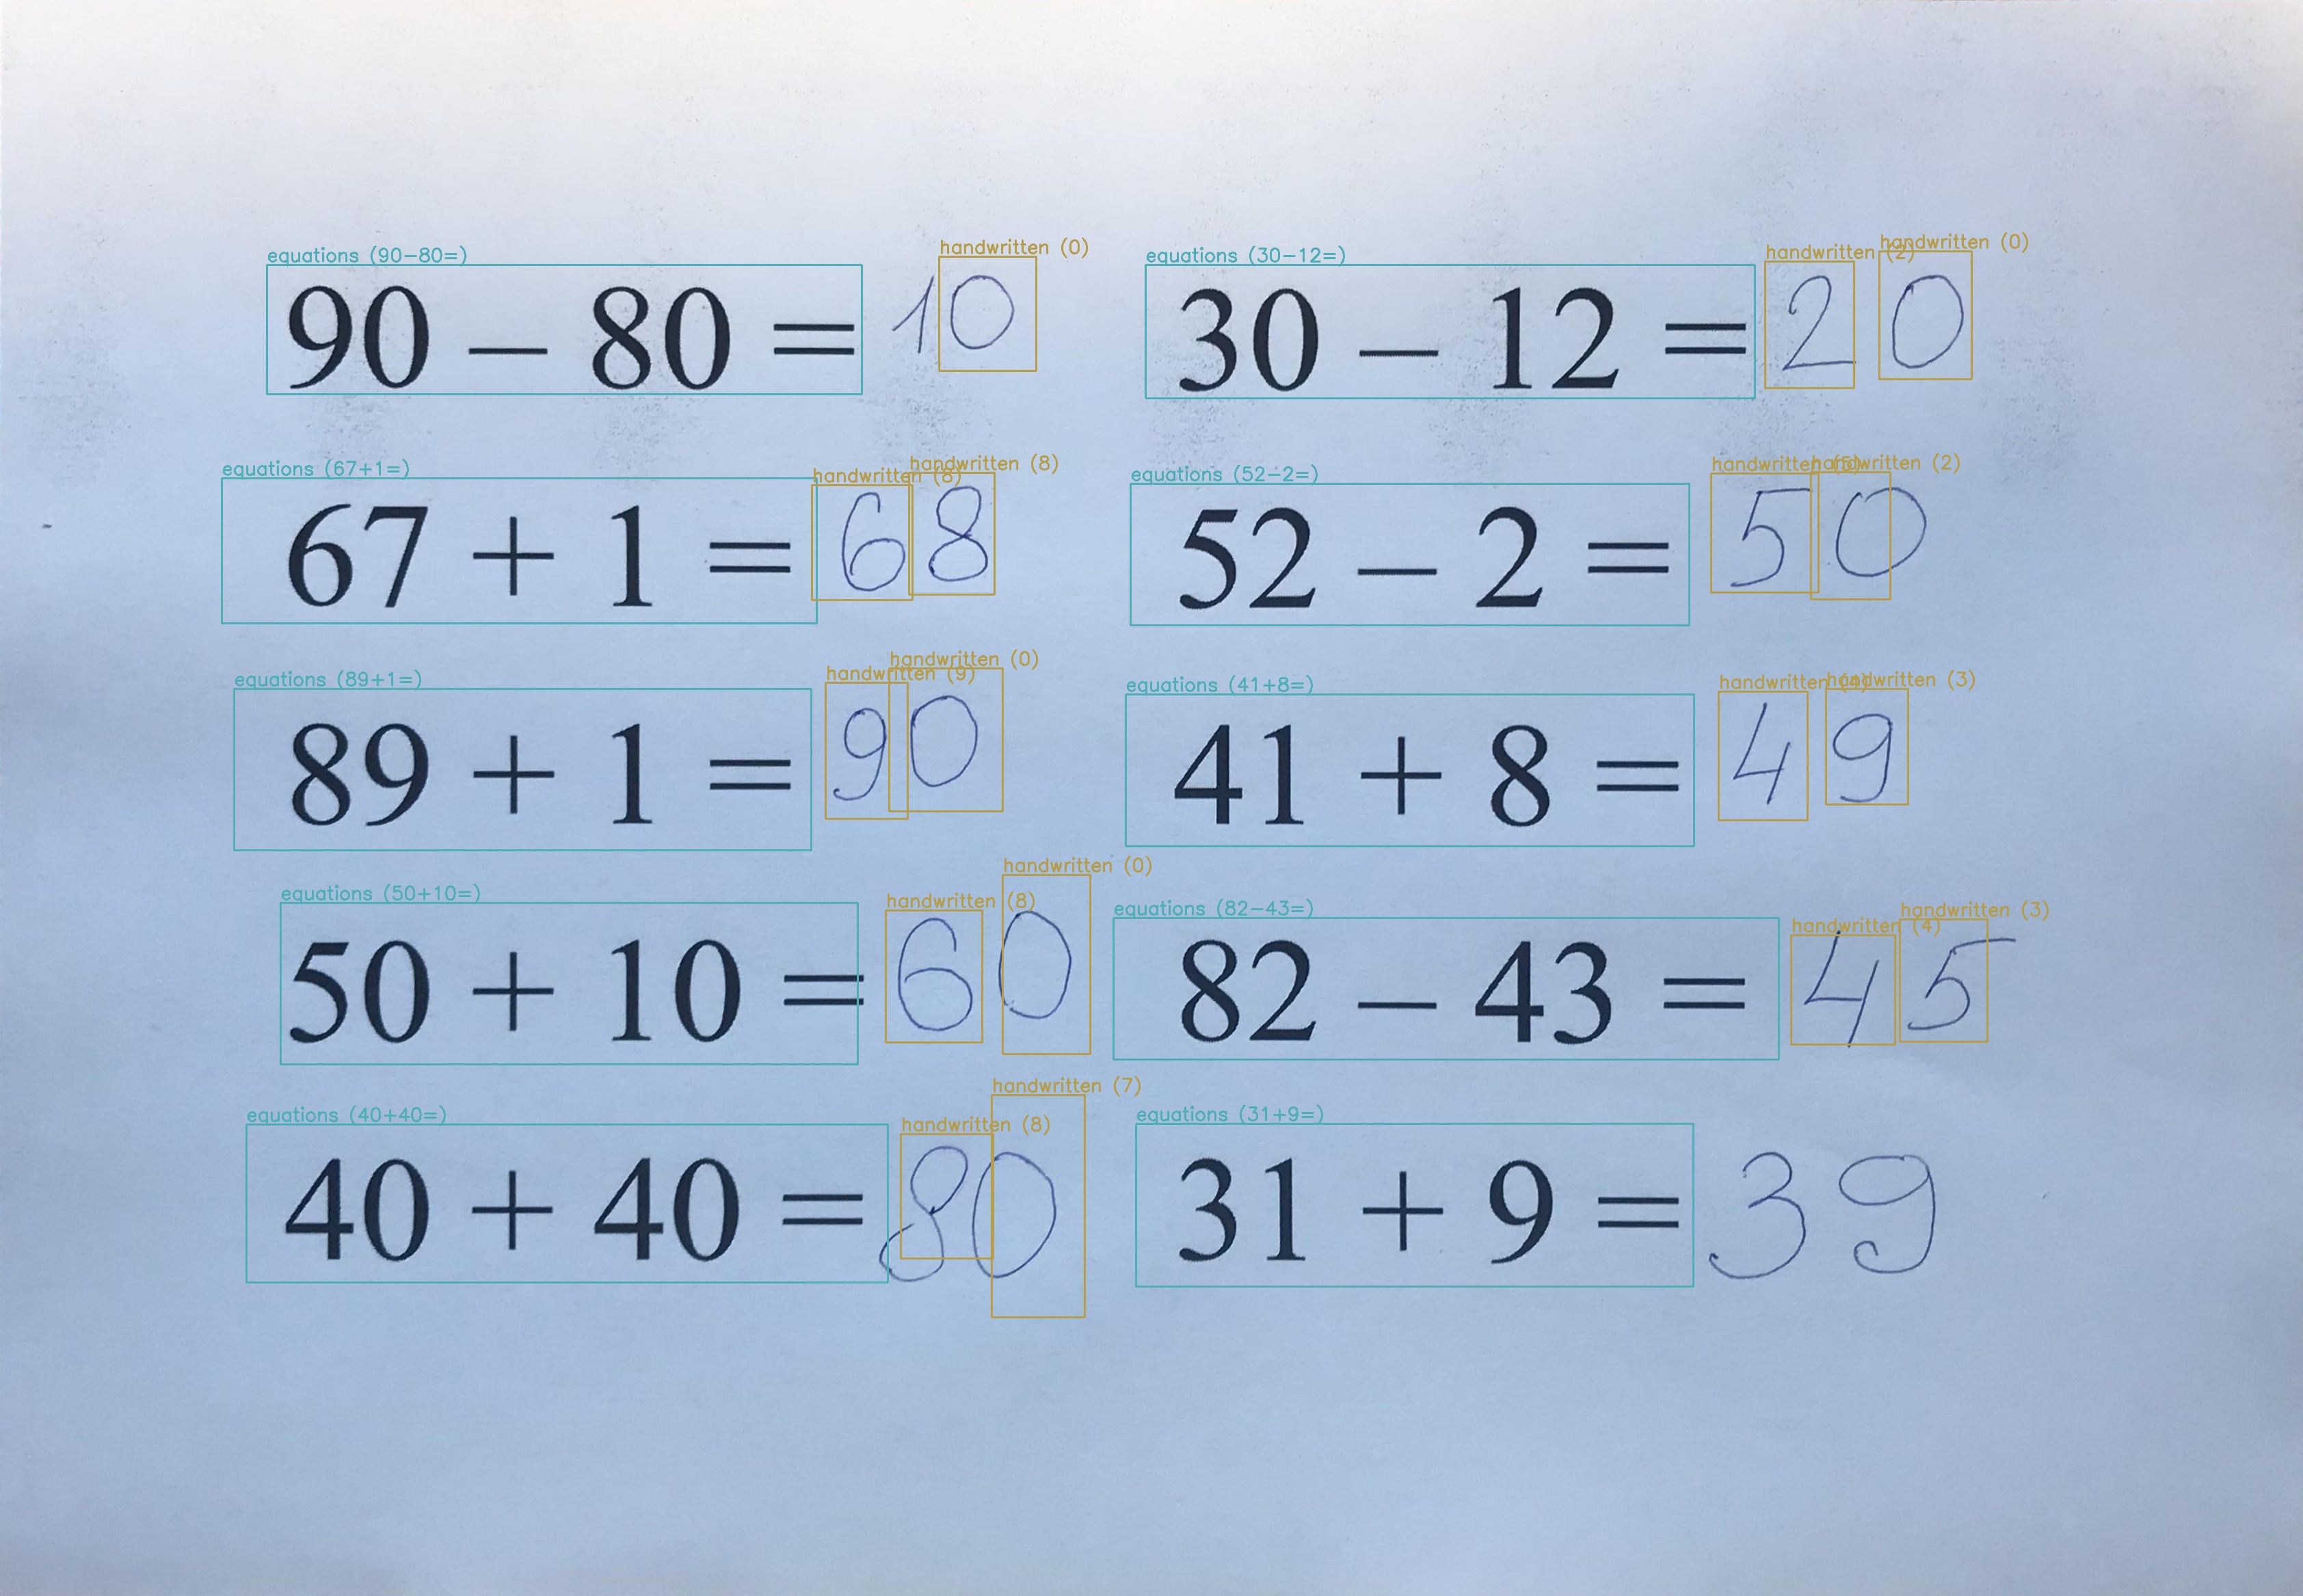 equations (90-80=) handwritten (0) equations (30-12=) handwritten (2) handwritten (0)
90 – 80 = 10 30 – 12 = 20
equations (67+1=) handwritten (8) handwritten (8) equations (52-2=) handwritten (5) handwritten (2)
67 + 1 = 68 52 – 2 = 50
equations (89+1=) handwritten (9) handwritten (0) equations (41+8=) handwritten (4) handwritten (3)
89 + 1 = 90 41 + 8 = 49
equations (50+10=) handwritten (8) handwritten (0) equations (82-43=) handwritten (4) handwritten (3)
50 + 10 = 60 82 – 43 = 45
equations (40+40=) handwritten (8) handwritten (7) equations (31+9=)
40 + 40 = 80 31 + 9 = 39